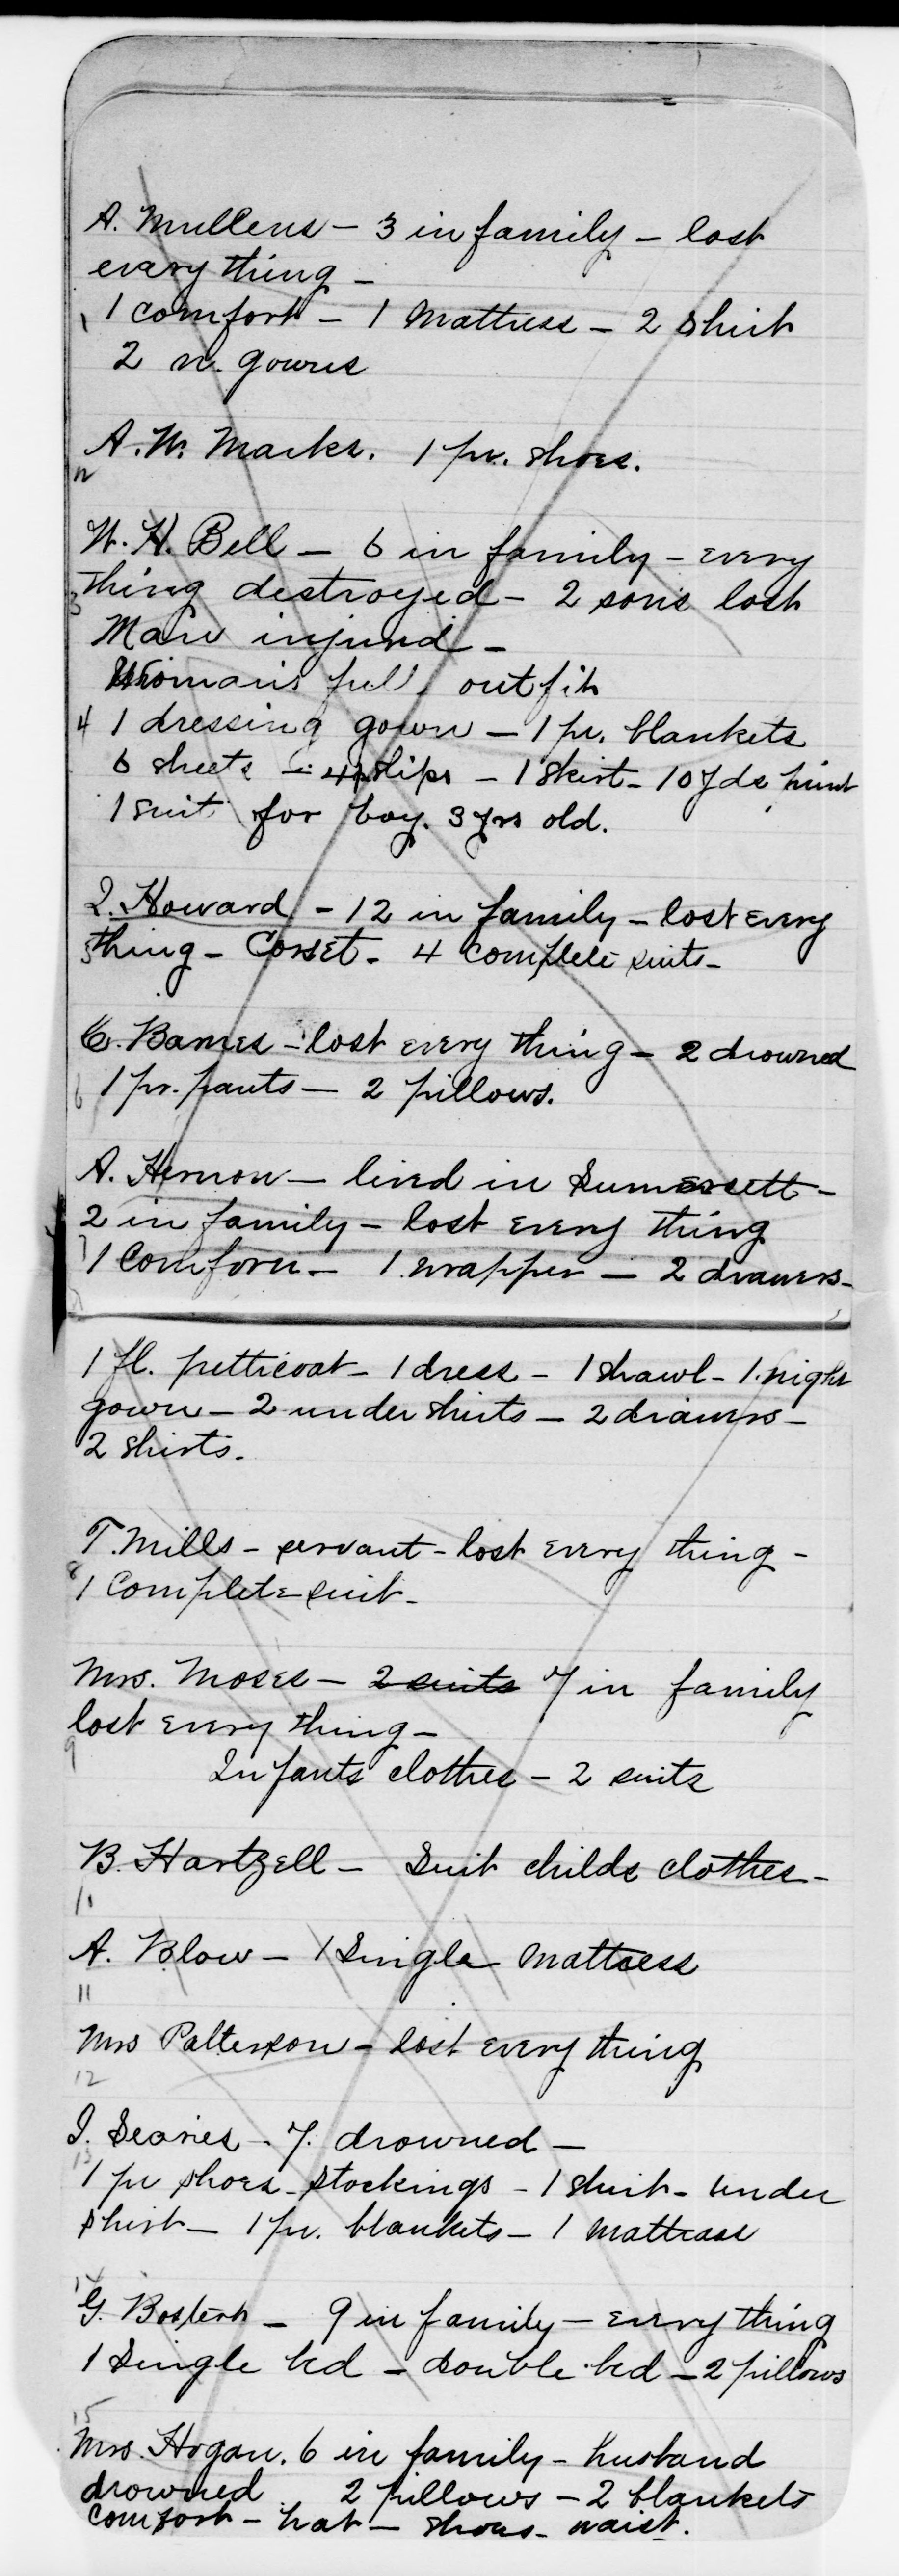 A. Mullens – 3 in family – lost
every thing –
1 1 comfort – 1 Mattress – 2 Shirt
2 n. gowns
A. W. Marks. 1 pr. shoes.
2
W. H. Bell – 6 in family – every
3 thing destroyed – 2 sons lost
Man injured –
Woman's full outfit
4 1 dressing gown – 1 pr. blankets
6 sheets – 4 slips – 1 Skirt – 10 yds print
1 suit for boy. 3 yrs old.
I. Howard – 12 in family – lost every
5 thing – Corset – 4 Complete suits –
C. Barnes – lost every thing – 2 drowned
6 1 pr. pants – 2 pillows.
A. Hernon – lived in Sumersett –
2 in family – lost every thing
7 1 Comfort – 1 wrapper – 2 drawers –
1 fl. petticoat – 1 dress – 1 shawl – 1 night
gown – 2 under shirts – 2 drawers –
2 shirts.
T. Mills – servant – lost every thing –
8 1 Complete suit –
Mrs. Moses – 2 suits 7 in family
lost every thing –
9
Infants clothes – 2 suits
B. Hartzell – Suit childs clothes –
10
A. Blow – 1 Single Mattress
11
Mrs Patterson – lost every thing
12
I. Searies – 7. drowned –
13
1 pr shoes – stockings – 1 shirt – under
shirt – 1 pr. blankets – 1 Mattrass
14
G. – 9 in family – every thing
1 Single bed – double bed – 2 pillows
15
Mrs. Hogan. 6 in family – husband
drowned 2 pillows – 2 blankets
comfort – hat – shoes – waist.